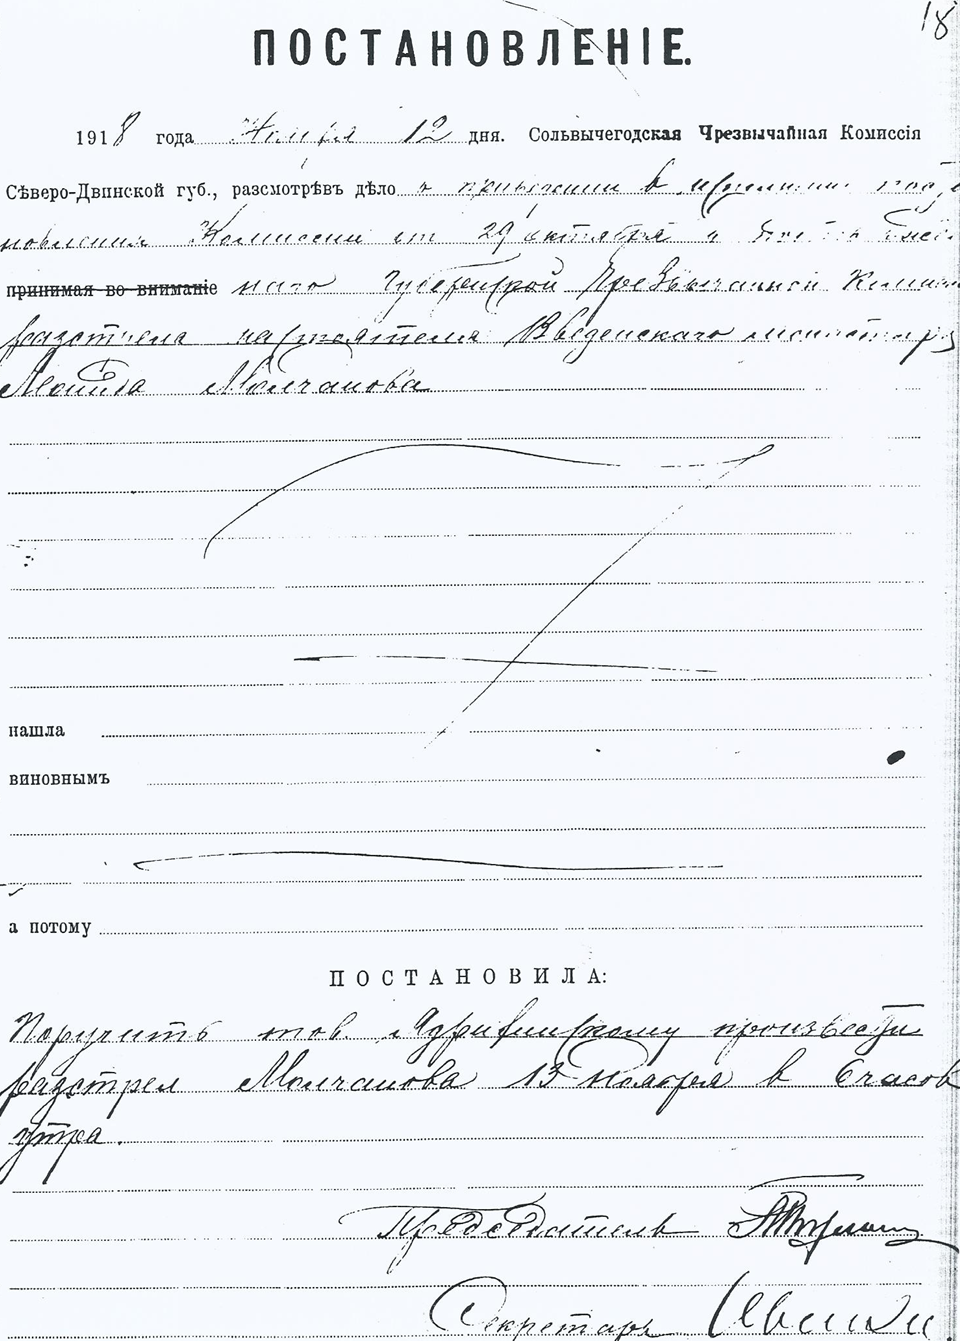 18
ПОСТАНОВЛЕНІЕ.
1918 года Ноября 12 дня. Сольвычегодская Чрезвычайная Комиссія
Сѣверо-Двинской губ., разсмотрѣвъ дѣло о приведении в исполнение поста
новления Комиссии от 29 октября и
принимая во вниманіе наго Губернской Чрезвычайной Комисси
разстрела настоятеля Введенскаго монастыря
Молчанова
нашла
виновнымъ
а потому
ПОСТАНОВИЛА:
Поручить тов. произвести
разстрел Молчанова 13 ноября в 6 часов
утра.
Председатель
Секретарь